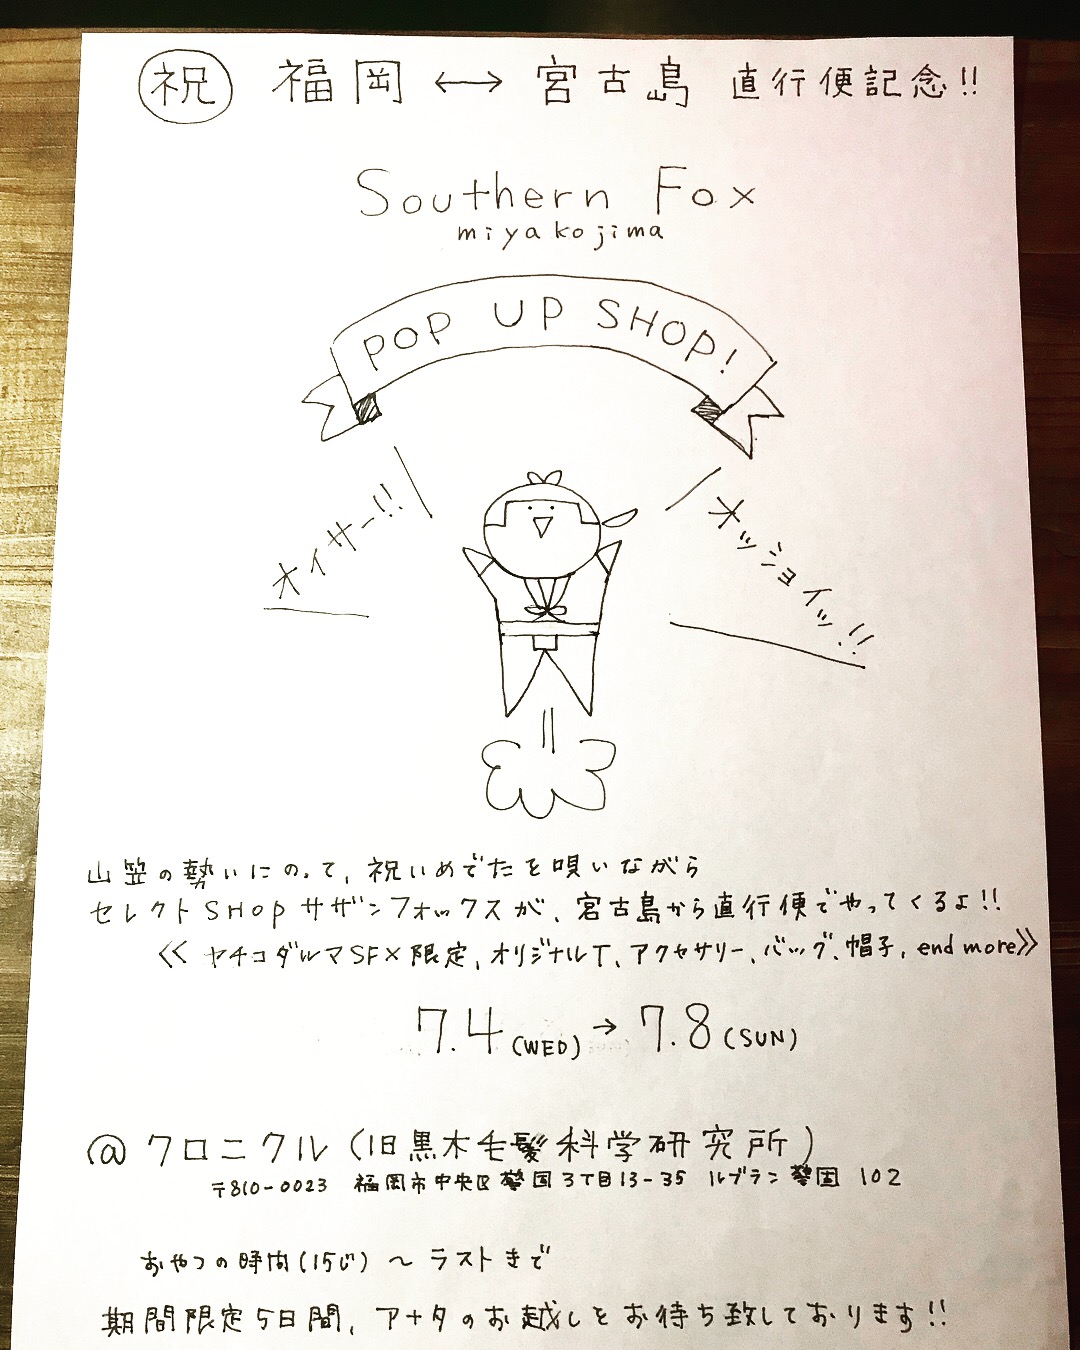 祝 福岡 ↔ 宮古島 直行便記念!!
Southern Fox
miyakojima
POP UP SHOP!
オイサー!!
オッショイッ!!
山笠の勢いにのって、祝いめでたを唄いながら
セレクトSHOPサザンフォックスが、宮古島から直行便でやってくるよ!!
≪ ヤチコダルマSFX限定、オリジナルT、アクセサリー、バッグ、帽子、end more≫
7.4(WED)→7.8(SUN)
@クロニクル(旧黒木毛髪科学研究所)
〒810-0023 福岡市中央区警固3丁目13-35 ルブラン警固 102
おやつの時間(15じ)〜ラストまで
期間限定5日間、アナタのお越しをお待ち致しております!!